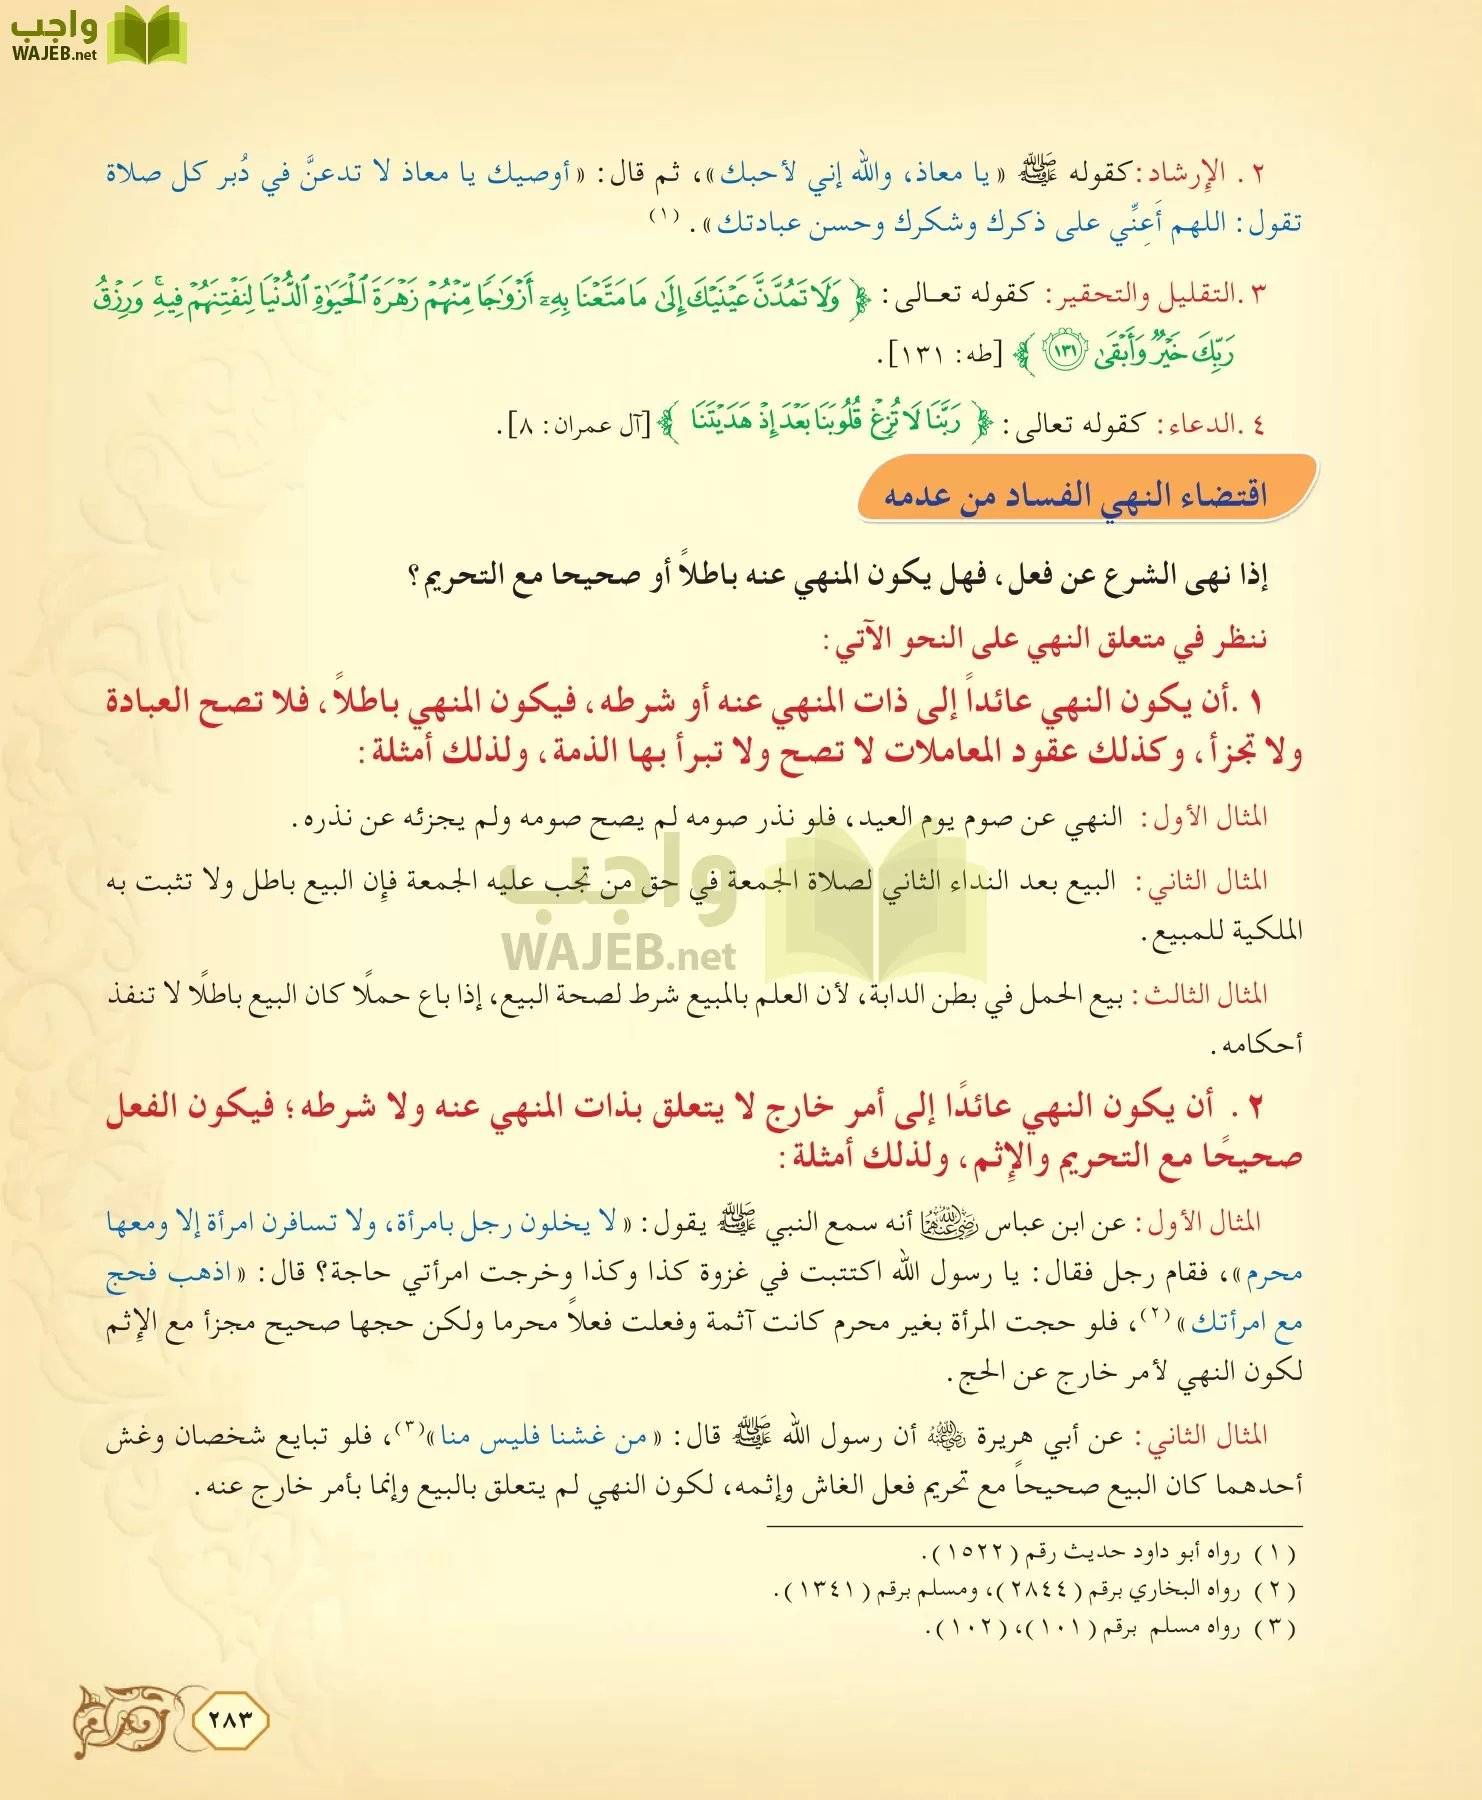 واجب
WAJEB.net
٢. الإرشاد: كقوله ﷺ «يا معاذ، والله إني لأحبك»، ثم قال: «أوصيك يا معاذ لا تدعنَّ في دُبر كل صلاة
تقول: اللهم أَعِنِّي على ذكرك وشكرك وحسن عبادتك». (١)
٣.التقليل والتحقير: كقوله تعالى: ﴿ وَلَا تَمُدَّنَّ عَيْنَيْكَ إِلَىٰ مَا مَتَّعْنَا بِهِۦٓ أَزْوَٰجًا مِّنْهُمْ زَهْرَةَ ٱلْحَيَوٰةِ ٱلدُّنْيَا لِنَفْتِنَهُمْ فِيهِ ۚ وَرِزْقُ
رَبِّكَ خَيْرٌ وَأَبْقَىٰ ١٣١ ﴾ [طه: ١٣١].
٤.الدعاء: كقوله تعالى: ﴿ رَبَّنَا لَا تُزِغْ قُلُوبَنَا بَعْدَ إِذْ هَدَيْتَنَا ﴾ [آل عمران: ٨].
اقتضاء النهي الفساد من عدمه
إذا نهى الشرع عن فعل، فهل يكون المنهي عنه باطلاً أو صحيحا مع التحريم؟
ننظر في متعلق النهي على النحو الآتي:
١.أن يكون النهي عائداً إلى ذات المنهي عنه أو شرطه، فيكون المنهي باطلاً، فلا تصح العبادة
ولا تجزأ، وكذلك عقود المعاملات لا تصح ولا تبرأ بها الذمة، ولذلك أمثلة:
المثال الأول: النهي عن صوم يوم العيد، فلو نذر صومه لم يصح صومه ولم يجزئه عن نذره.
المثال الثاني: البيع بعد النداء الثاني لصلاة الجمعة في حق من تجب عليه الجمعة فإن البيع باطل ولا تثبت به
الملكية للمبيع.
واجب
WAJEB.net
المثال الثالث: بيع الحمل في بطن الدابة، لأن العلم بالمبيع شرط لصحة البيع، إذا باع حملًا كان البيع باطلًا لا تنفذ
أحكامه.
٢. أن يكون النهي عائدًا إلى أمر خارج لا يتعلق بذات المنهي عنه ولا شرطه؛ فيكون الفعل
صحيحًا مع التحريم والإثم، ولذلك أمثلة:
المثال الأول: عن ابن عباس رضي الله عنهما أنه سمع النبي ﷺ يقول: «لا يخلون رجل بامرأة، ولا تسافرن امرأة إلا ومعها
محرم»، فقام رجل فقال: يا رسول الله اكتتبت في غزوة كذا وكذا وخرجت امرأتي حاجة؟ قال: «اذهب فحج
مع امرأتك»(٢)، فلو حجت المرأة بغير محرم كانت آثمة وفعلت فعلاً محرما ولكن حجها صحيح مجزأ مع الإثم
لكون النهي لأمر خارج عن الحج.
المثال الثاني: عن أبي هريرة رضي الله عنه أن رسول الله ﷺ قال: «من غشنا فليس منا»(٣)، فلو تبايع شخصان وغش
أحدهما كان البيع صحيحاً مع تحريم فعل الغاش وإثمه، لكون النهي لم يتعلق بالبيع وإنما بأمر خارج عنه.
(١) رواه أبو داود حديث رقم (١٥٢٢).
(٢) رواه البخاري برقم (٢٨٤٤)، ومسلم برقم (١٣٤١).
(٣) رواه مسلم برقم (١٠١)، (١٠٢).
٢٨٣